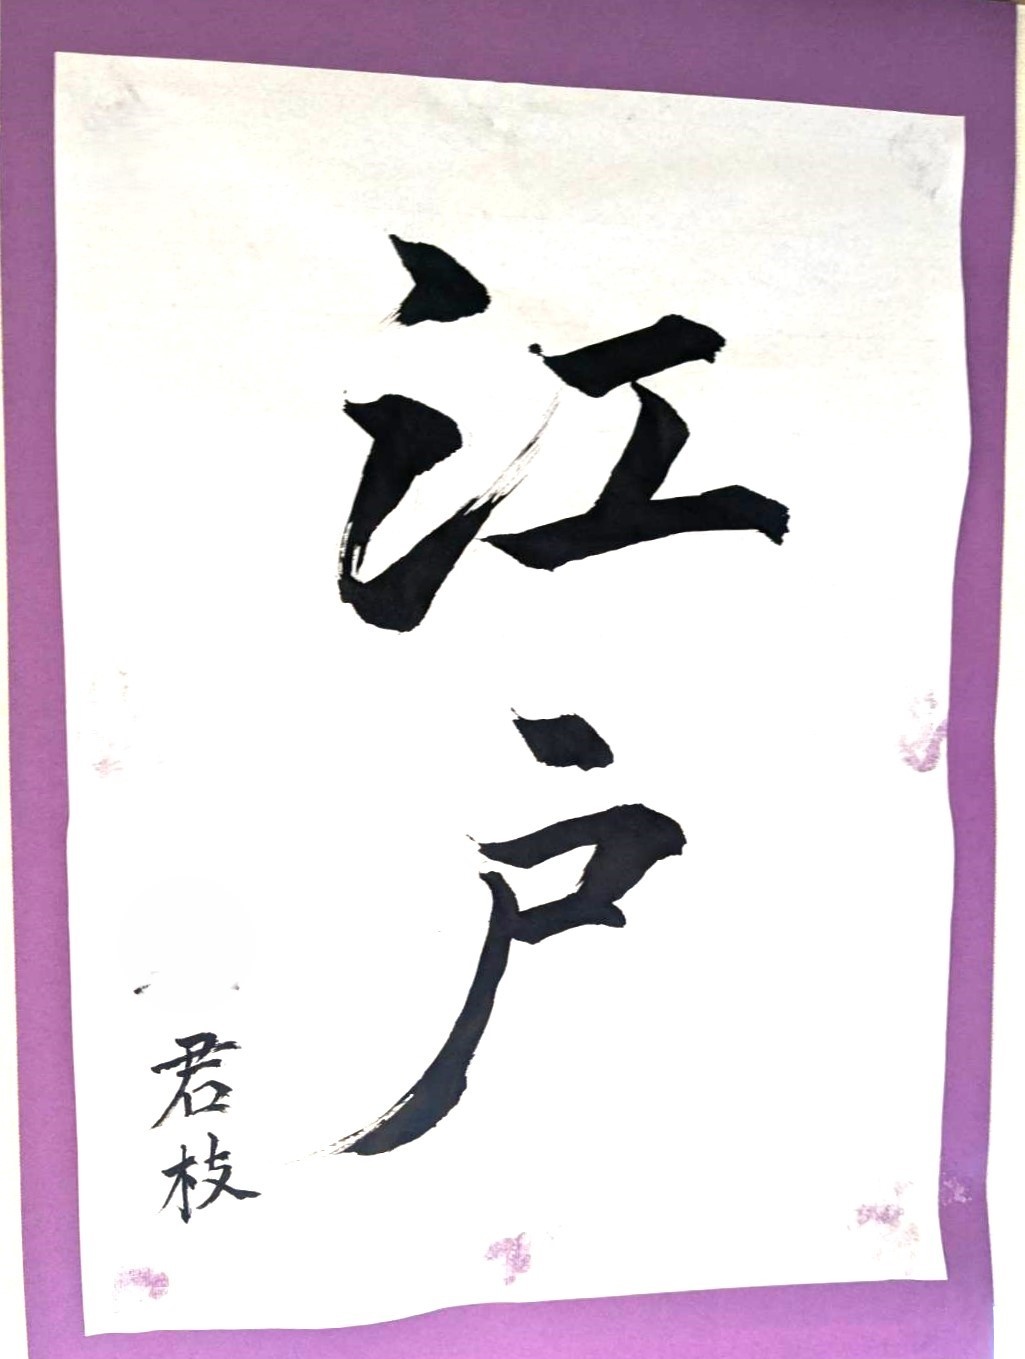 江戸
君枝